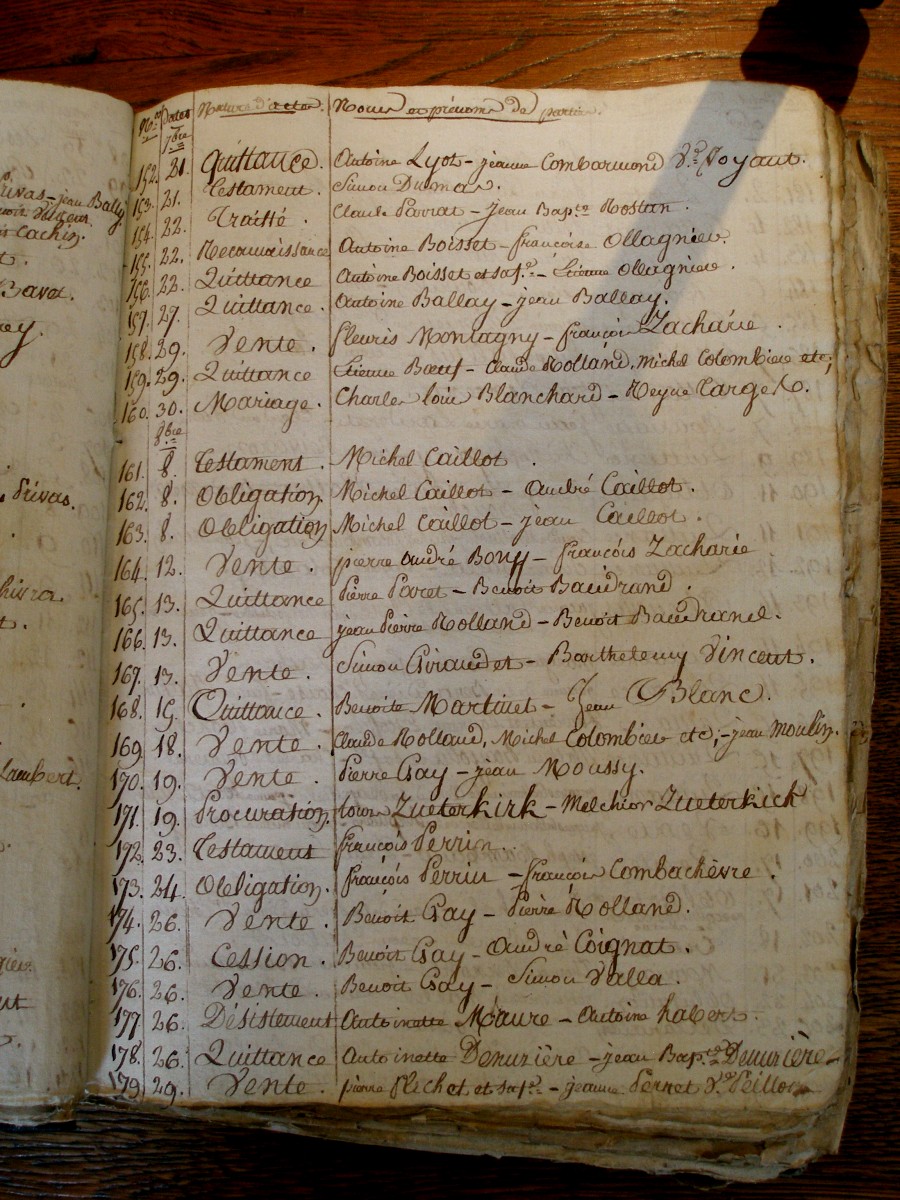 Privas - jean Bally
Cachin.
t.
Bavet.
ey.
Privas.
t.
Lambert.
Nos Dates Nature d'actes. Noms et prénoms de parties
7bre
152. 21. Quittance. Antoine Lyot - jeanne Combarmond Ve. Noyant.
153. 21. Testament. Simon Dumas.
154. 22. Traitté. Claude Parrat - Jean Bapte. Rostan.
155. 22. Reconnaissance Antoine Boisset - françoise Ollagnier.
156. 22. Quittance Antoine Boisset et sa fe. - Etienne Ollagniere.
157. 27. Quittance Antoine Ballay - jean Ballay.
158. 29. Vente. fleuris Montagny - françois Zacharie.
159. 29. Quittance Etienne Boeuf - Claude Rolland, Michel Colombier etc,
160. 30. Mariage. Charles louis Blanchard - Reyne Target.
8bre
161. 8. Testament. Michel Caillot.
162. 8. Obligation Michel Caillot - andré Caillot.
163. 8. Obligation Michel Caillot - jean Caillot.
164. 12. Vente. pierre andré Bony - françois Zacharie
165. 13. Quittance Pierre Paret - Benoit Baudrand.
166. 13. Quittance jean Pierre Rolland - Benoit Baudrand.
167. 13. Vente. Simon Giraudet - Barthelemy Vincent.
168. 15. Quittance. Benoite Martinet - Jean Blanc.
169. 18. Vente. Claude Rolland, Michel Colombier etc, - jean Moulin.
170. 19. Vente. Pierre Gay - jean Moussy.
171. 19. Procuration. Zueterkirk - Melchior Zueterkick
172. 23. Testament françois Perrin.
173. 24. Obligation. françois Perrin - françois Combachèvre.
174. 26. Vente. Benoit Gay - Pierre Rolland.
175. 26. Cession. Benoit Gay - andré Coignat.
176. 26. Vente. Benoit Gay - Simon Valla.
177. 26. Désistement Antoinette Maure - Antoine habert.
178. 26. Quittance Antoinette Demurière - jean Bapte. Demurière
179. 29. Vente. pierre flechet et sa fe. - jeanne Pernet Ve. Peillon